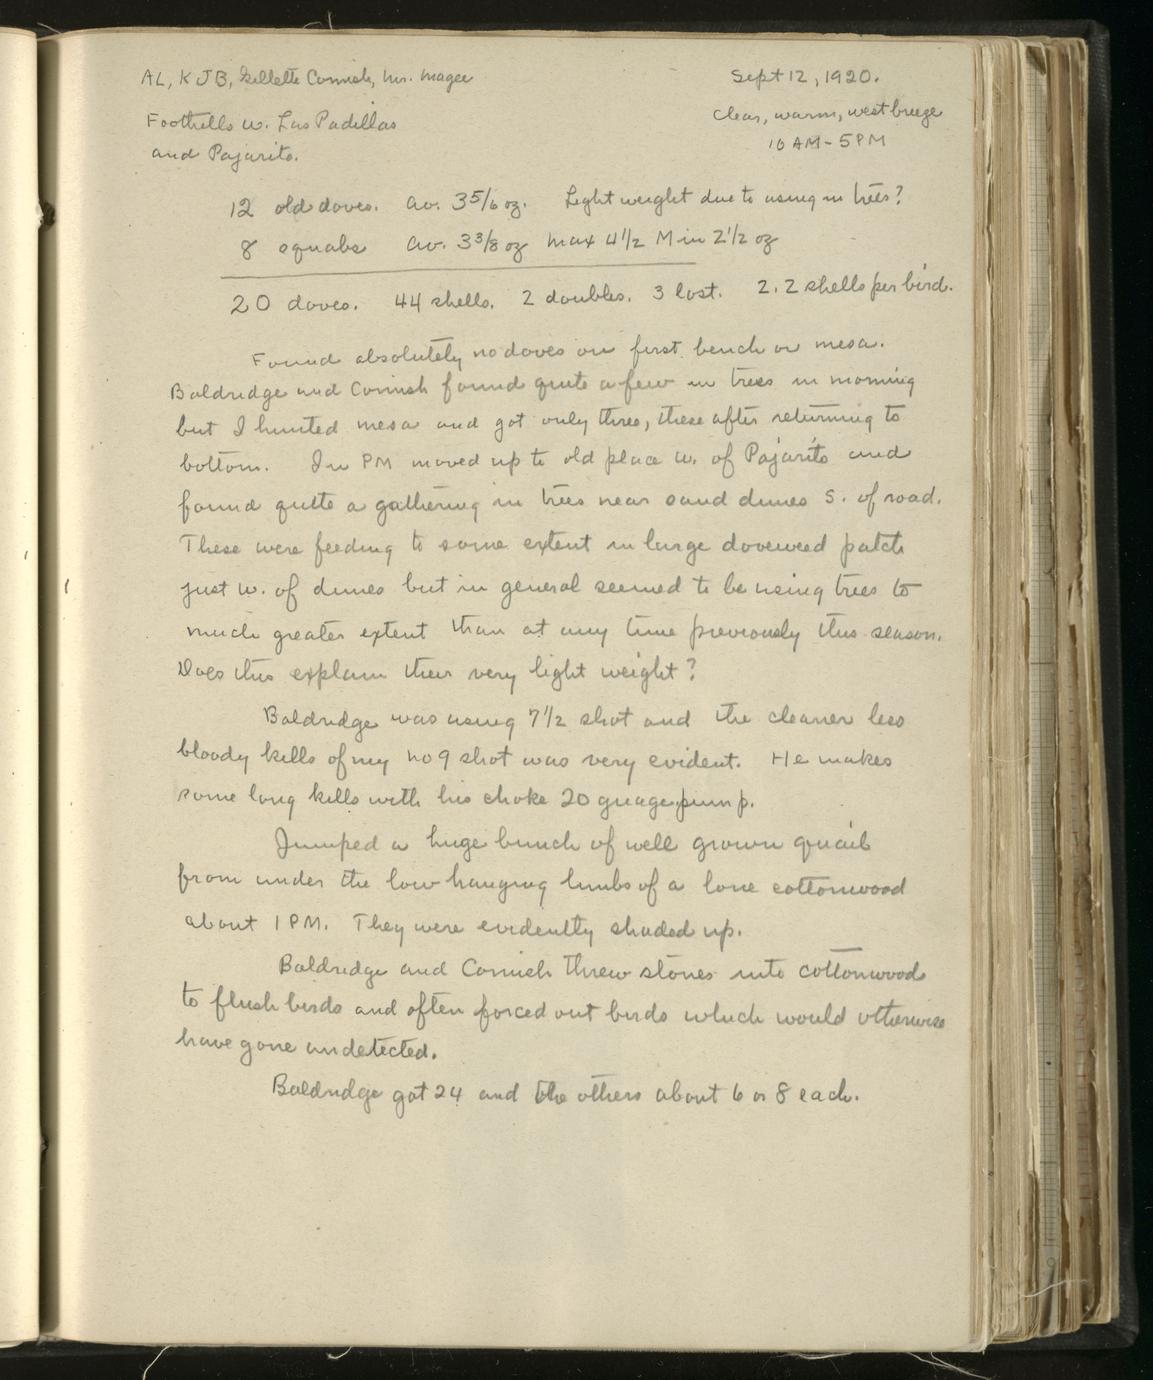 AL, KJB, Gillette Cornish, Mr. Magee
Sept 12, 1920.
Foothills w. Las Padillas
and Pajarito.
Clear, warm, west breeze
10 AM - 5 PM
12 old doves. Av. 3 5/6 oz. Light weight due to using in trees?
8 squabs Av. 3 3/8 oz Max 4 1/2 Min 2 1/2 oz
20 doves. 44 shells. 2 doubles. 3 lost. 2.2 shells per bird.
Found absolutely no doves on first bench or mesa.
Baldridge and Cornish found quite a few in trees in morning
but I hunted mesa and got only three, these after returning to
bottom. In PM moved up to old place w. of Pajarito and
found quite a gathering in trees near sand dunes S. of road.
These were feeding to some extent in large doveweed patch
just w. of dunes but in general seemed to be using trees to
much greater extent than at any time previously this season.
Does this explain their very light weight?
Baldridge was using 7 1/2 shot and the cleaner less
bloody kills of my no 9 shot was very evident. He makes
some long kills with his choke 20 guage pump.
Jumped a huge bunch of well grown quail
from under the low hanging limbs of a lone cottonwood
about 1 PM. They were evidently shaded up.
Baldridge and Cornish threw stones into cottonwoods
to flush birds and often forced out birds which would otherwise
have gone undetected.
Baldridge got 24 and the others about 6 or 8 each.